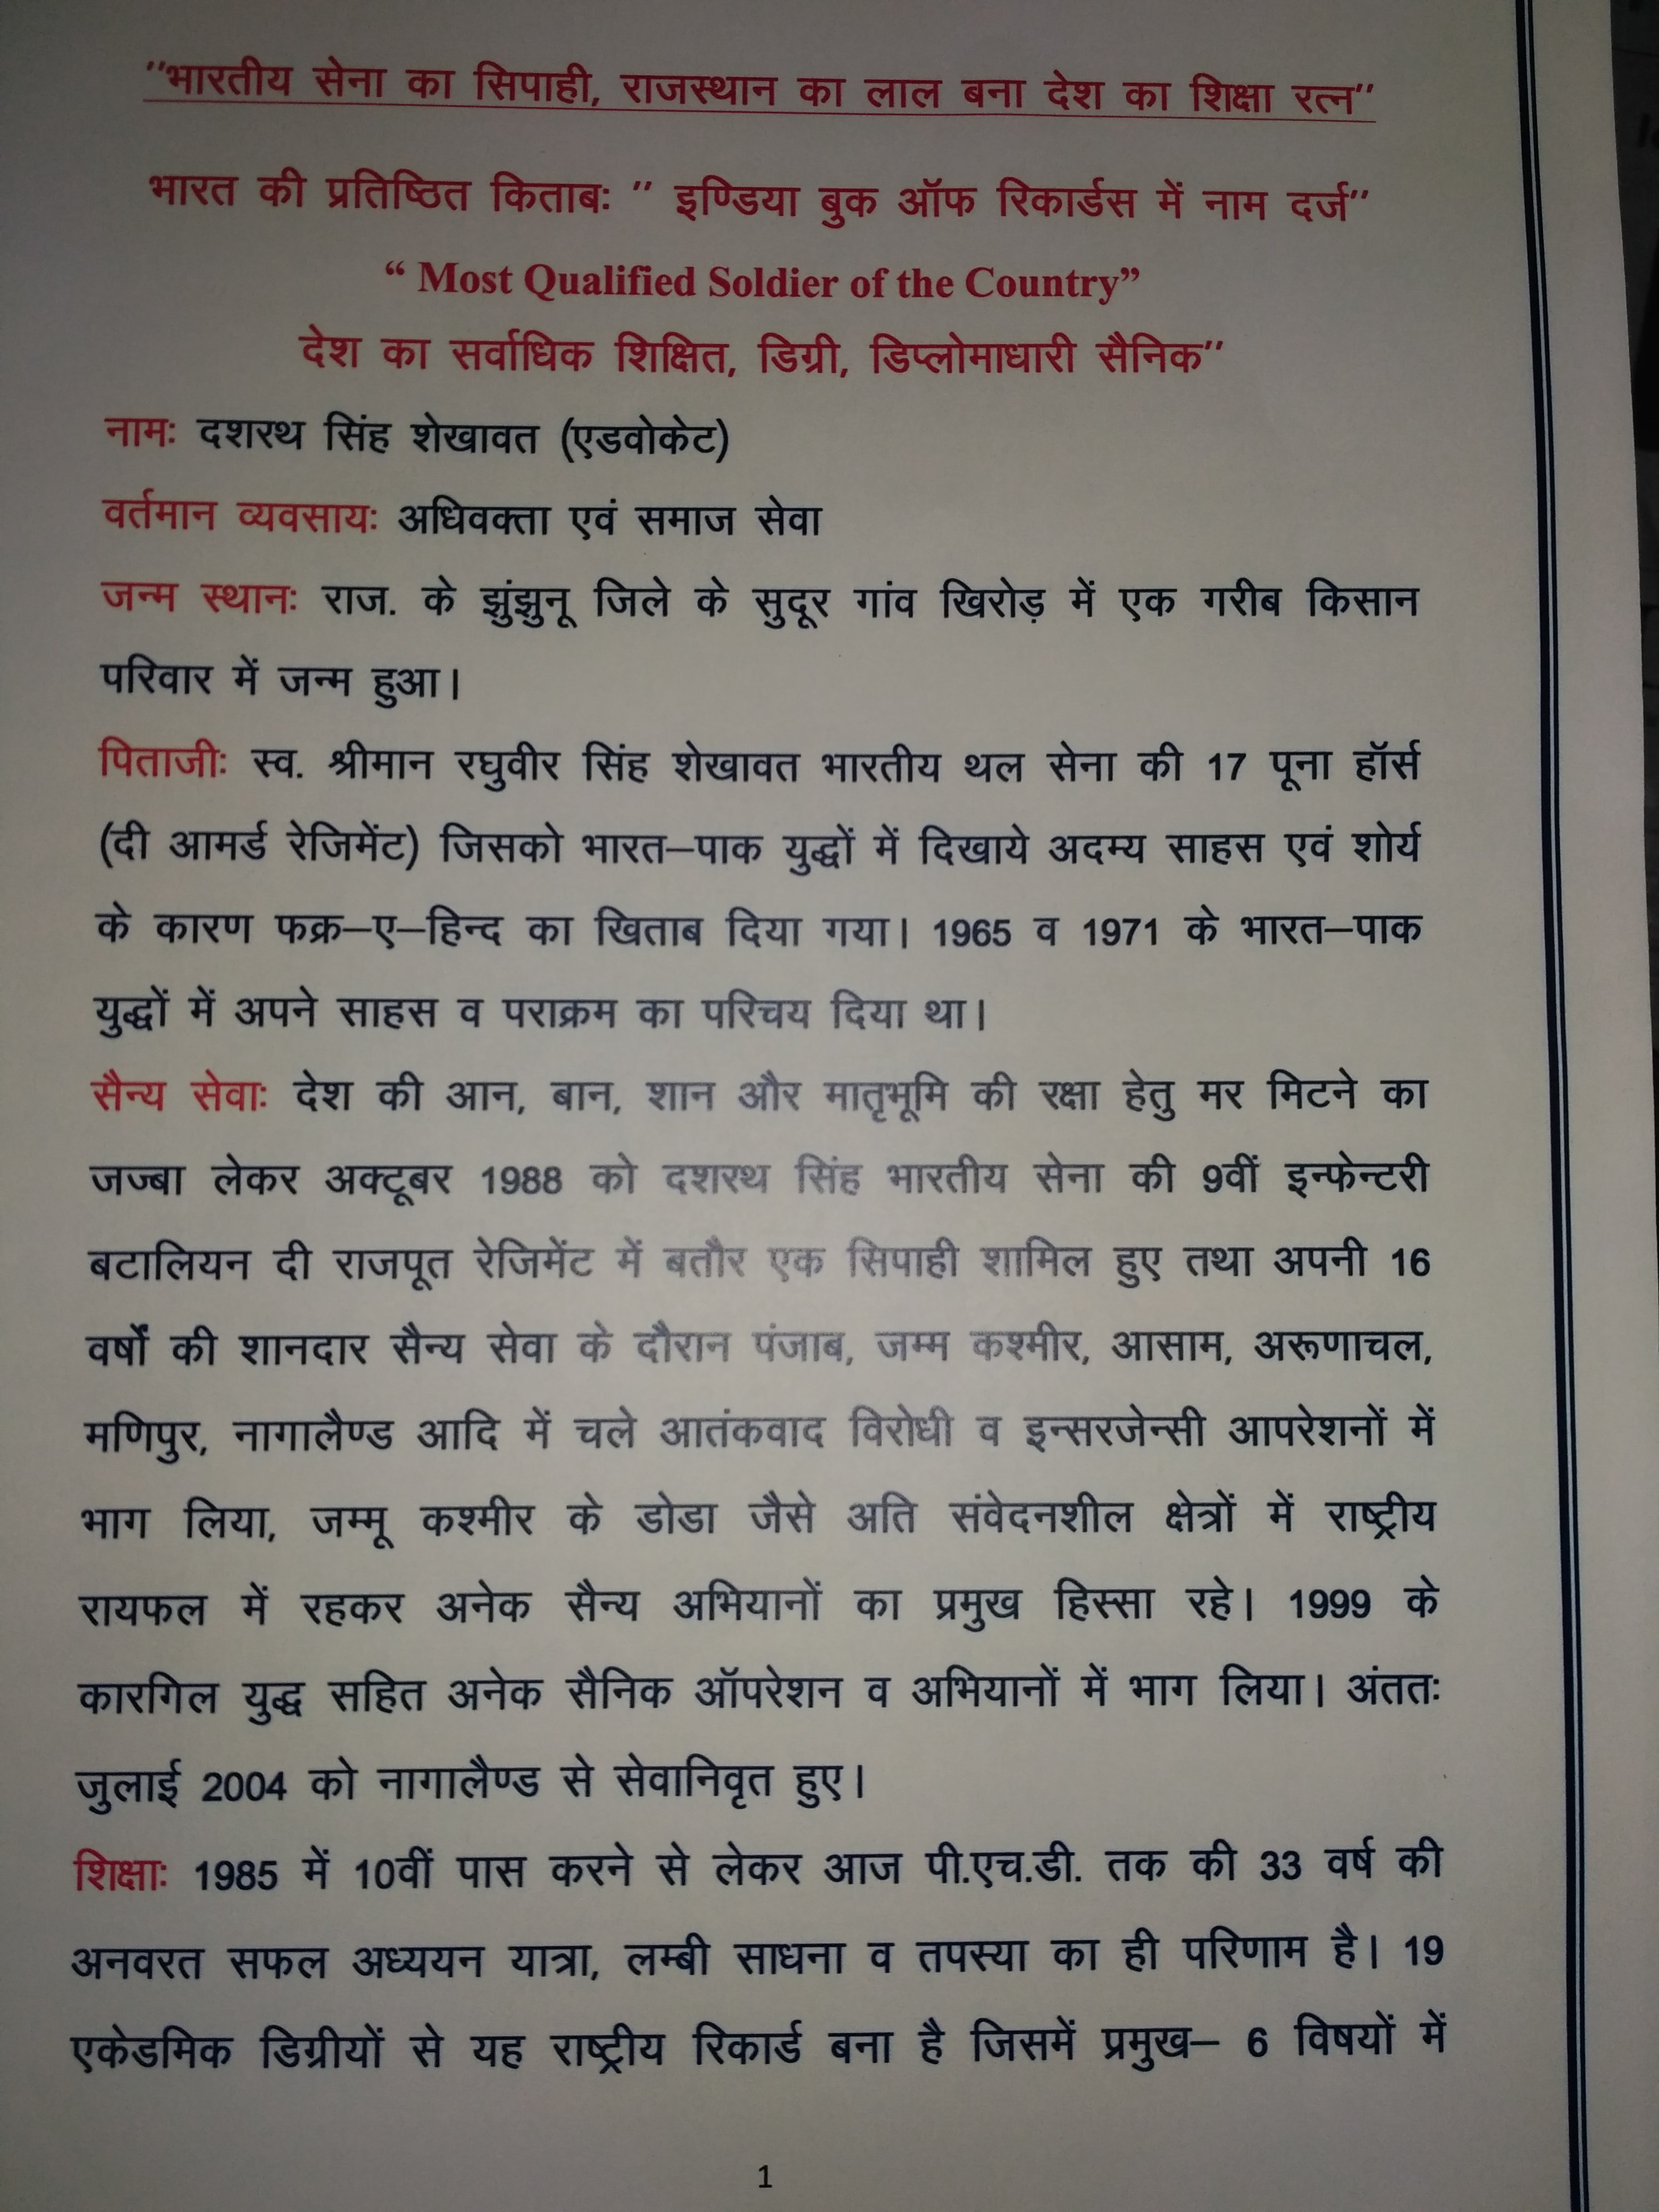 "भारतीय सेना का सिपाही, राजस्थान का लाल बना देश का शिक्षा रत्न"
भारत की प्रतिष्ठित किताबः " इण्डिया बुक ऑफ रिकार्डस में नाम दर्ज"
“ Most Qualified Soldier of the Country”
देश का सर्वाधिक शिक्षित, डिग्री, डिप्लोमाधारी सैनिक"
नामः दशरथ सिंह शेखावत (एडवोकेट)
वर्तमान व्यवसायः अधिवक्ता एवं समाज सेवा
जन्म स्थानः राज. के झुंझुनू जिले के सुदूर गांव खिरोड़ में एक गरीब किसान
परिवार में जन्म हुआ।
पिताजीः स्व. श्रीमान रघुवीर सिंह शेखावत भारतीय थल सेना की 17 पूना हॉर्स
(दी आमर्ड रेजिमेंट) जिसको भारत–पाक युद्धों में दिखाये अदम्य साहस एवं शोर्य
के कारण फक्र–ए–हिन्द का खिताब दिया गया। 1965 व 1971 के भारत–पाक
युद्धों में अपने साहस व पराक्रम का परिचय दिया था।
सैन्य सेवाः देश की आन, बान, शान और मातृभूमि की रक्षा हेतु मर मिटने का
जज्बा लेकर अक्टूबर 1988 को दशरथ सिंह भारतीय सेना की 9वीं इन्फेन्टरी
बटालियन दी राजपूत रेजिमेंट में बतौर एक सिपाही शामिल हुए तथा अपनी 16
वर्षों की शानदार सैन्य सेवा के दौरान पंजाब, जम्म कश्मीर, आसाम, अरूणाचल,
मणिपुर, नागालैण्ड आदि में चले आतंकवाद विरोधी व इन्सरजेन्सी आपरेशनों में
भाग लिया, जम्मू कश्मीर के डोडा जैसे अति संवेदनशील क्षेत्रों में राष्ट्रीय
रायफल में रहकर अनेक सैन्य अभियानों का प्रमुख हिस्सा रहे। 1999 के
कारगिल युद्ध सहित अनेक सैनिक ऑपरेशन व अभियानों में भाग लिया। अंततः
जुलाई 2004 को नागालैण्ड से सेवानिवृत हुए।
शिक्षाः 1985 में 10वीं पास करने से लेकर आज पी.एच.डी. तक की 33 वर्ष की
अनवरत सफल अध्ययन यात्रा, लम्बी साधना व तपस्या का ही परिणाम है। 19
एकेडमिक डिग्रीयों से यह राष्ट्रीय रिकार्ड बना है जिसमें प्रमुख– 6 विषयों में
1